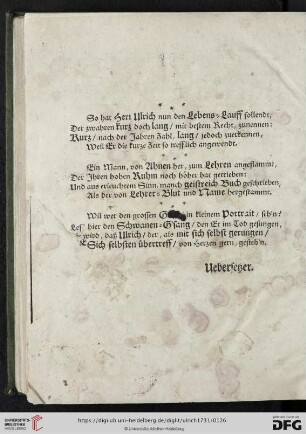 * * *
So hat Herr Ulrich nun den Lebens-Lauff vollendt,
Der zwahren kurz doch lang / mit bestem Recht, zunennen:
Kurz / nach der Jahren Zahl, lang / jedoch zuerkennen,
Weil Er die kurze Zeit so trefflich angewendt.
* * *
Ein Mann, von Ahnen her, zum Lehren angestammt,
Der Ihren hohen Ruhm noch höher hat getrieben:
Und aus erleuchtem Sinn, manch geistreich Buch geschrieben,
Als der von Lehrer-Blut und Name hergestammt.
* * *
Will wer den grossen in kleinem Portrait / seh'n?
Les' hier den Schwanen-Gsang / den Er im Tod gesungen /
wird, daß Ulrich / der, als mit sich selbst gerungen /
Sich selbsten übertreff / von Herzen gern, gesteh'n.
Uebersetzer.
UNIVERSITÄTS-
BIBLIOTHEK
HEIDELBERG
https://digi.ub.uni-heidelberg.de/diglit/ulrich1731/0126
© Universitätsbibliothek Heidelberg
gefördert durch die
DFG